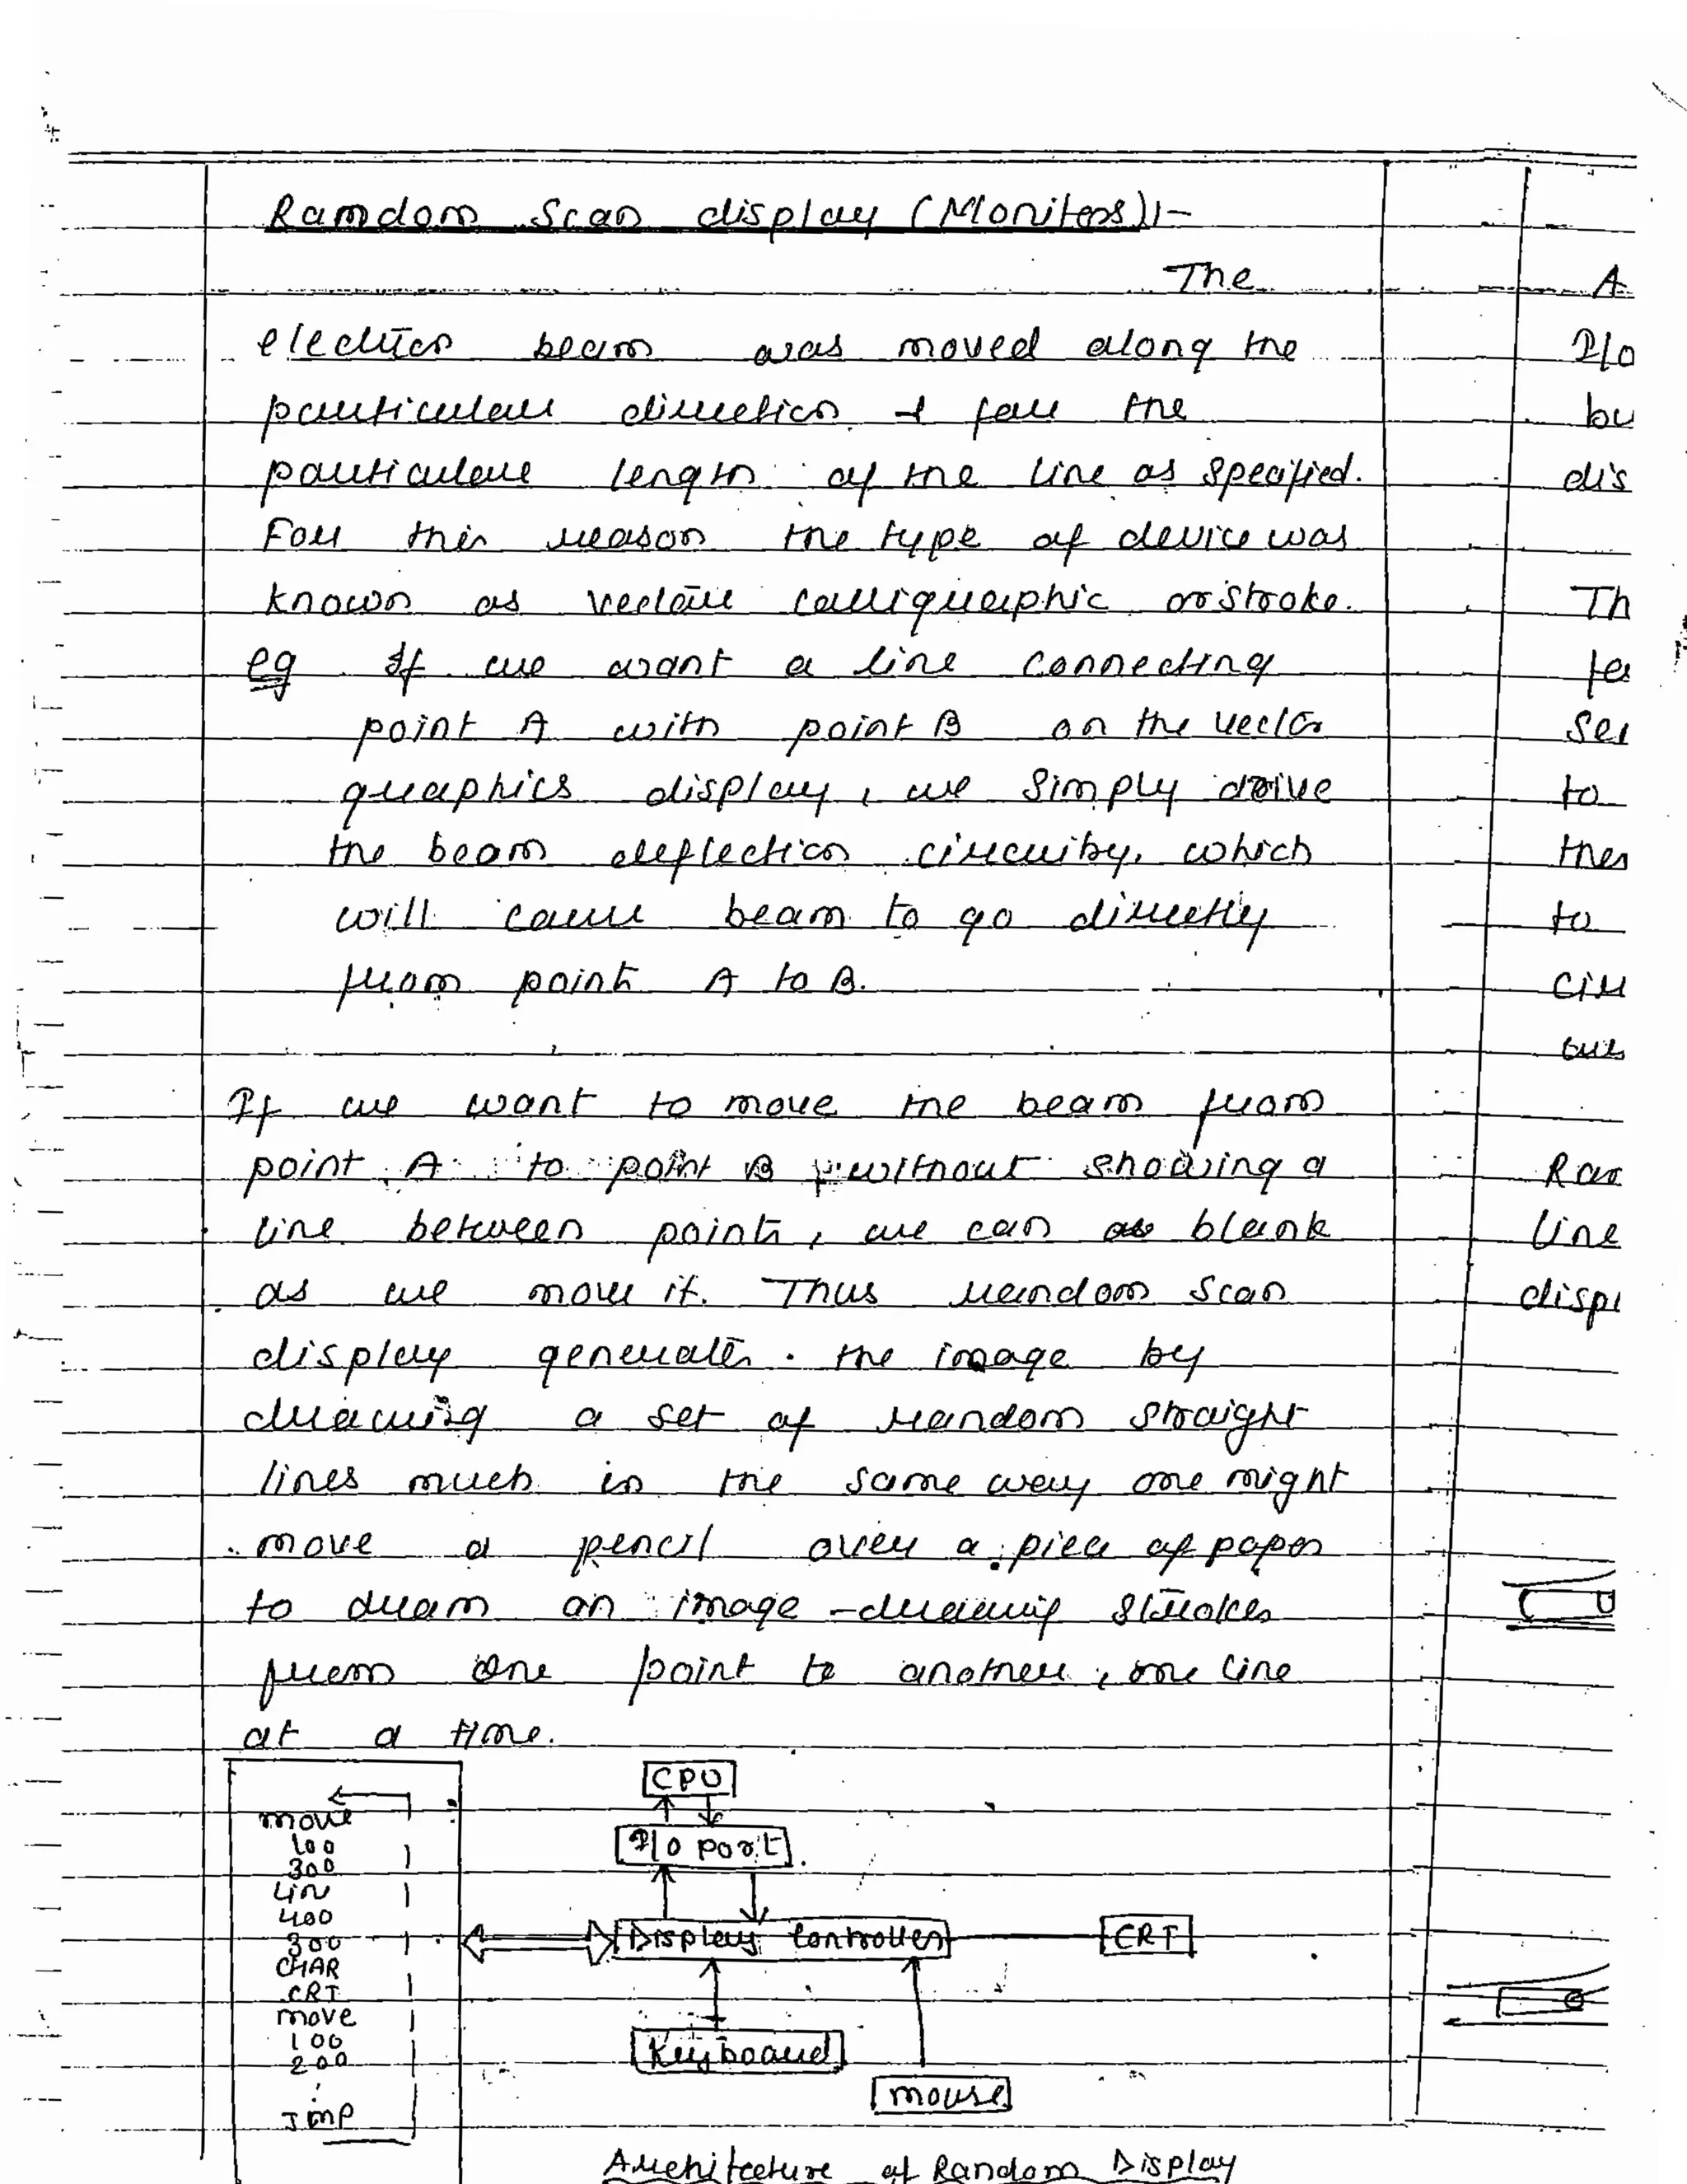 Ramdom Scan display (Monitors):-
The
electron beam was moved along the
particular direction & for the
particular length of the line as specified.
For this reason the type of device was
known as vector calligraphic or stroke.
eg If we want a line connecting
point A with point B on the vector
graphics display, we simply drive
the beam deflection circuitry, which
will cause beam to go directly
from point A to B.
If we want to move the beam from
point A to point B without showing a
line between points, we can blank
as we move it. Thus random scan
display generates the image by
drawing a set of random straight
lines much in the same way one might
move a pencil over a piece of paper
to dram an image - drawing strokes
from one point to another, one line
at a time.
move
100
300
Lin
400
300
CHAR
CRT
move
100
200
JMP
CPU
I/O port
Display Controller
CRT
Keyboard
mouse
Architecture of Random Display
A
I/O
bu
dis
Th
to
to
Ran
line
disp